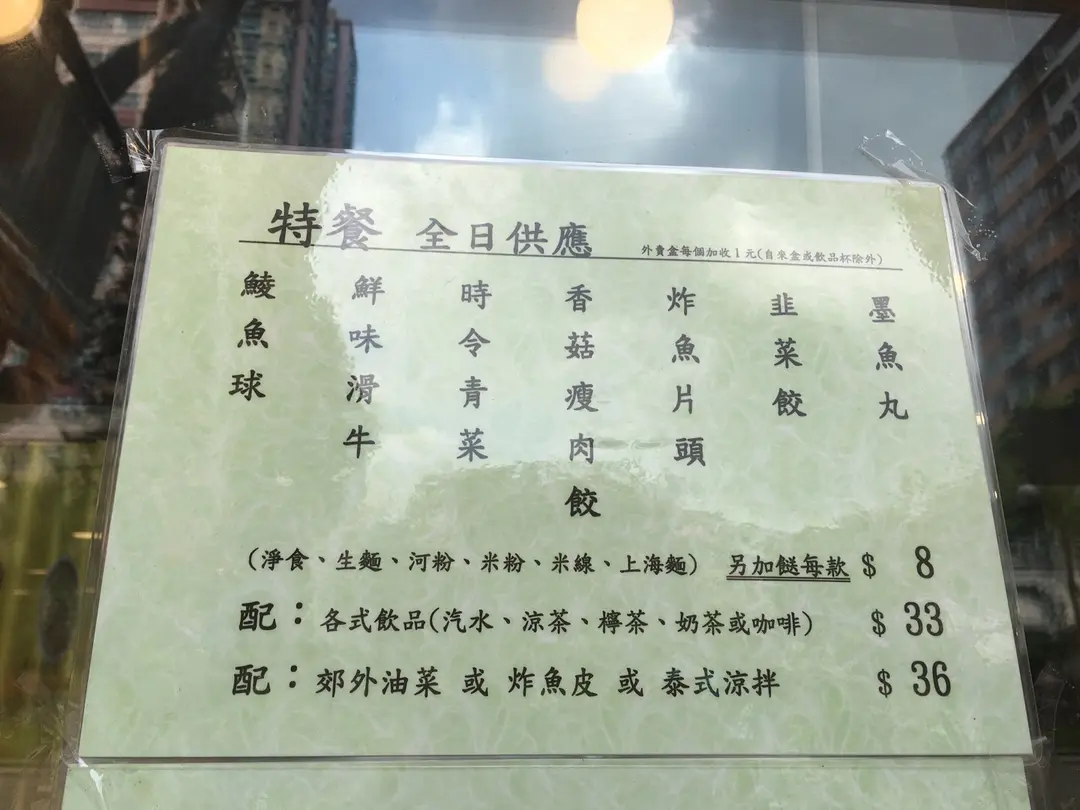 特餐 全日供應 外賣盒每個加收1元(自來盒或飲品杯除外)
墨魚丸
韭菜餃
炸魚片頭
香菇瘦肉餃
時令青菜
鮮味滑牛
鯪魚球
(淨食、生麵、河粉、米粉、米線、上海麵) 另加餸每款 $ 8
配:各式飲品(汽水、涼茶、檸茶、奶茶或咖啡) $ 33
配:郊外油菜 或 炸魚皮 或 泰式涼拌 $ 36